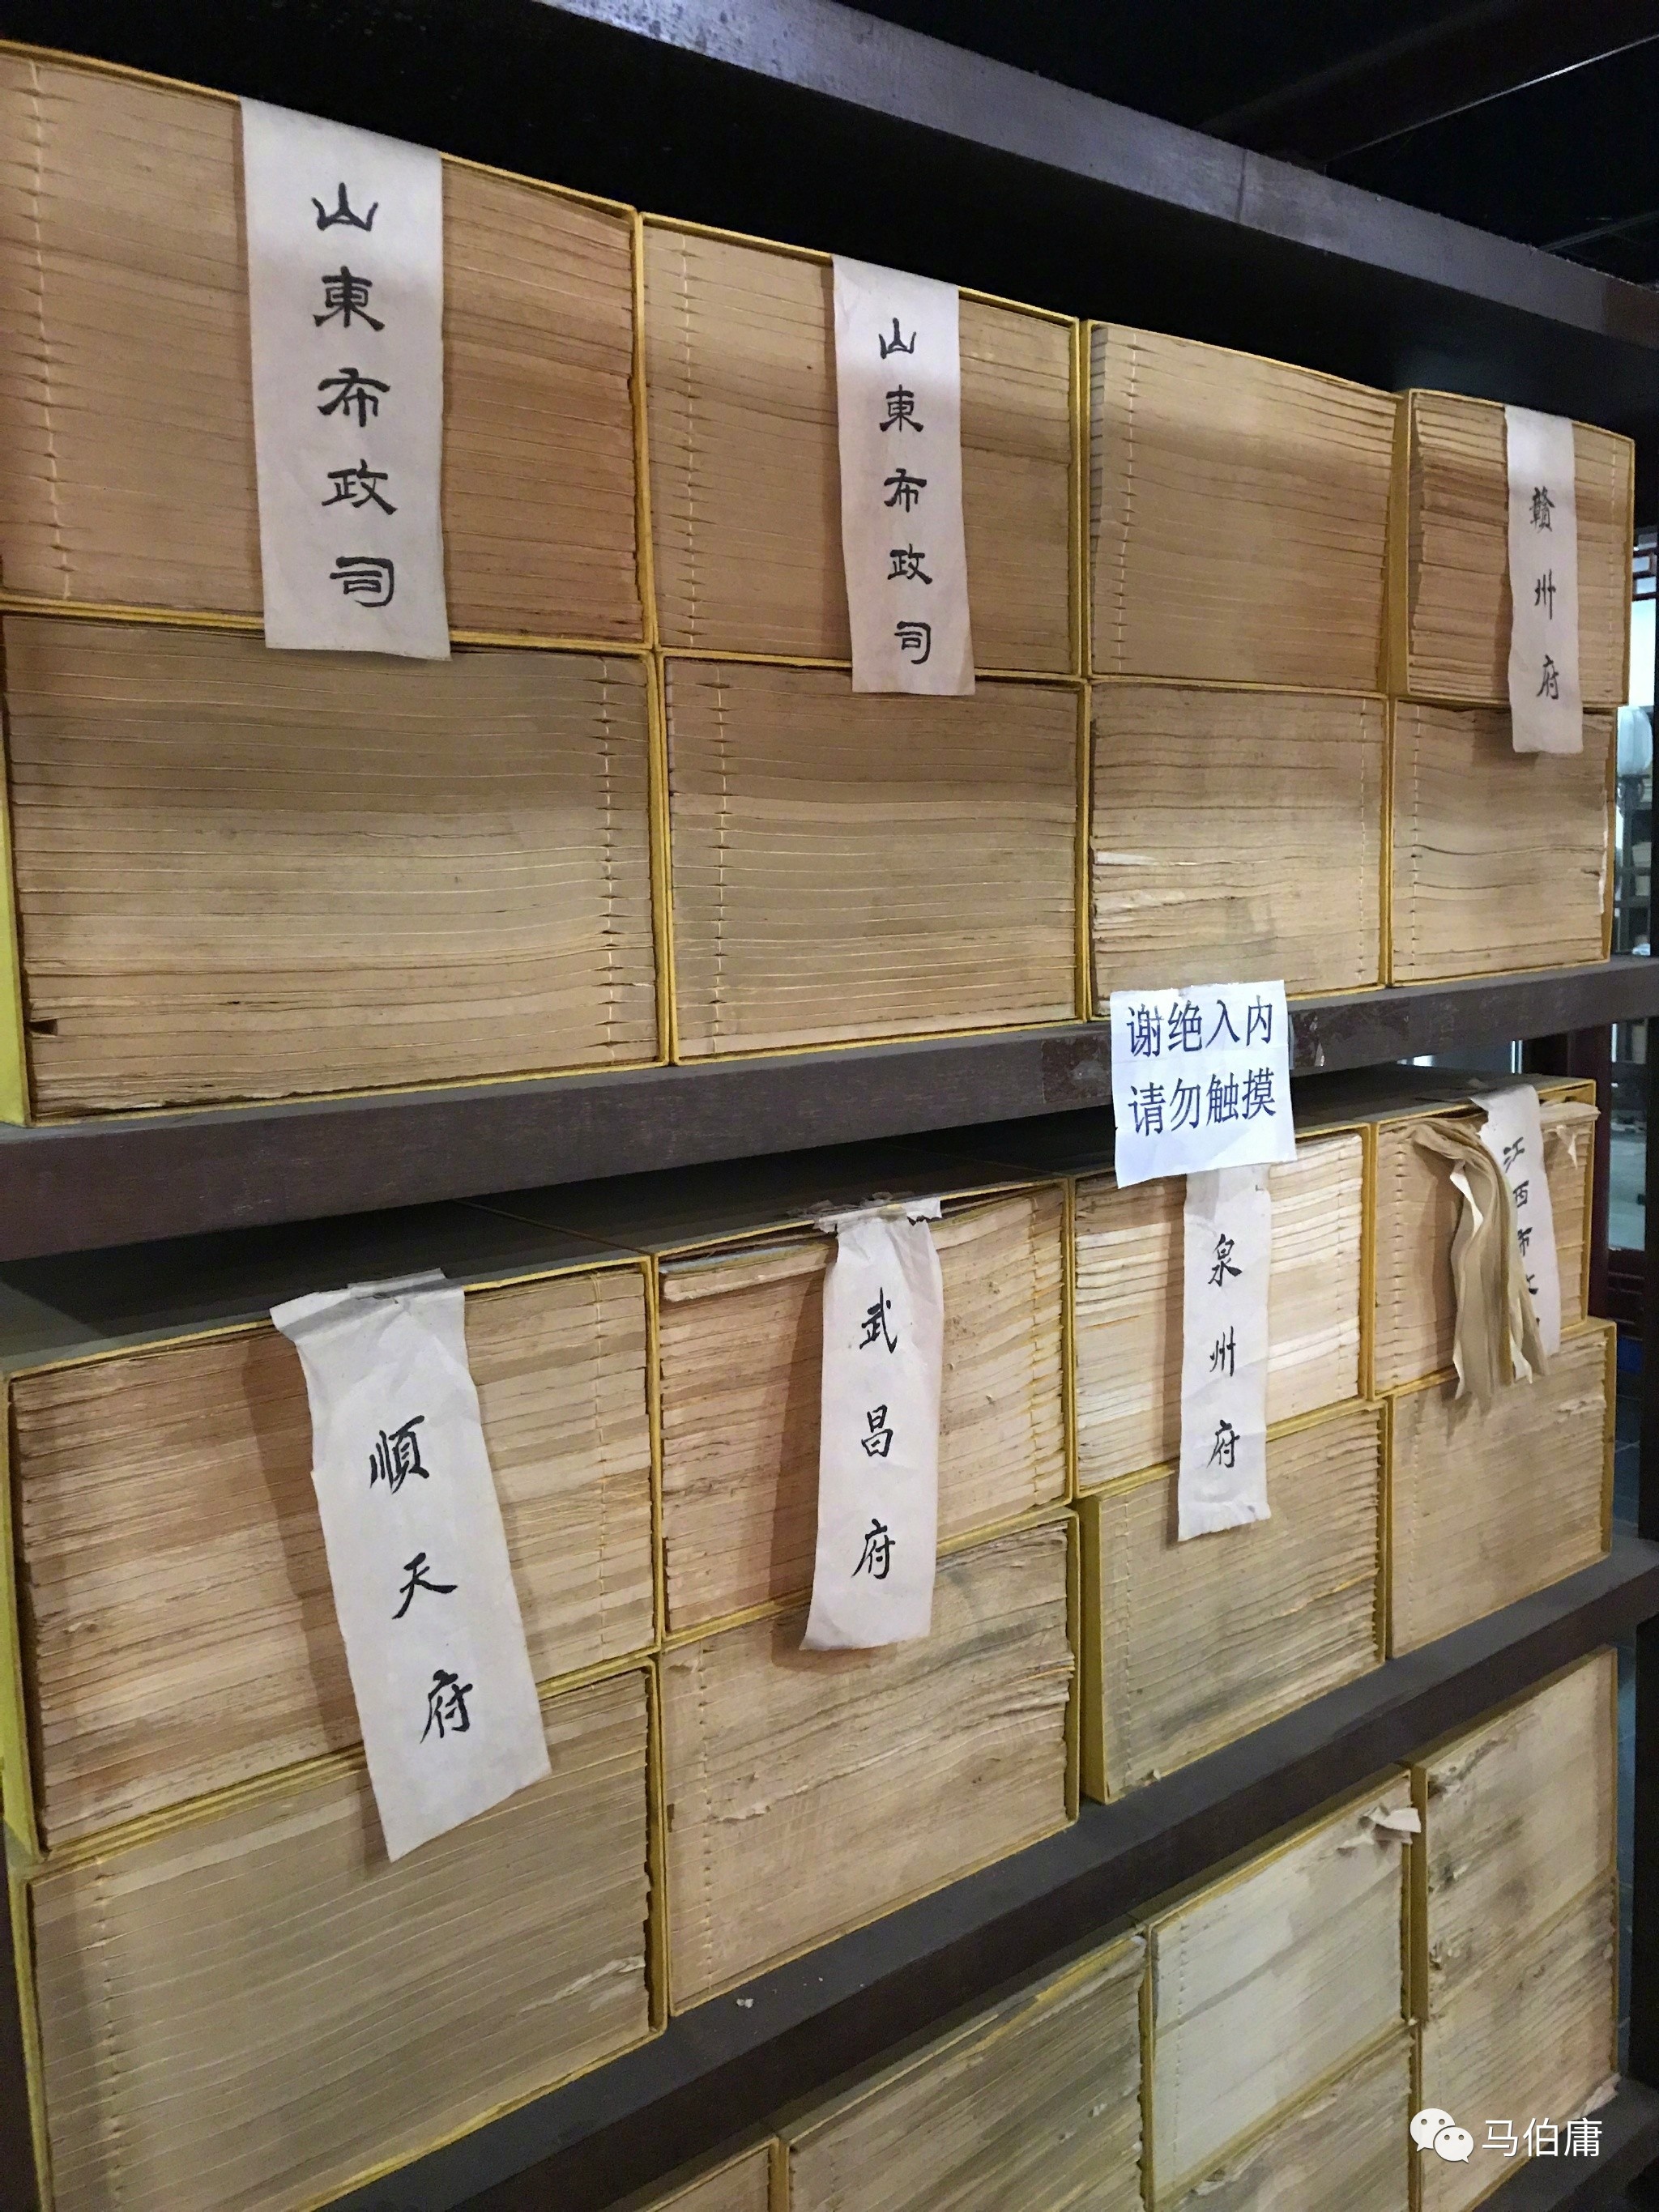 山東布政司
山東布政司
赣州府
谢绝入内
请勿触摸
順天府
武昌府
泉州府
江西布
马伯庸